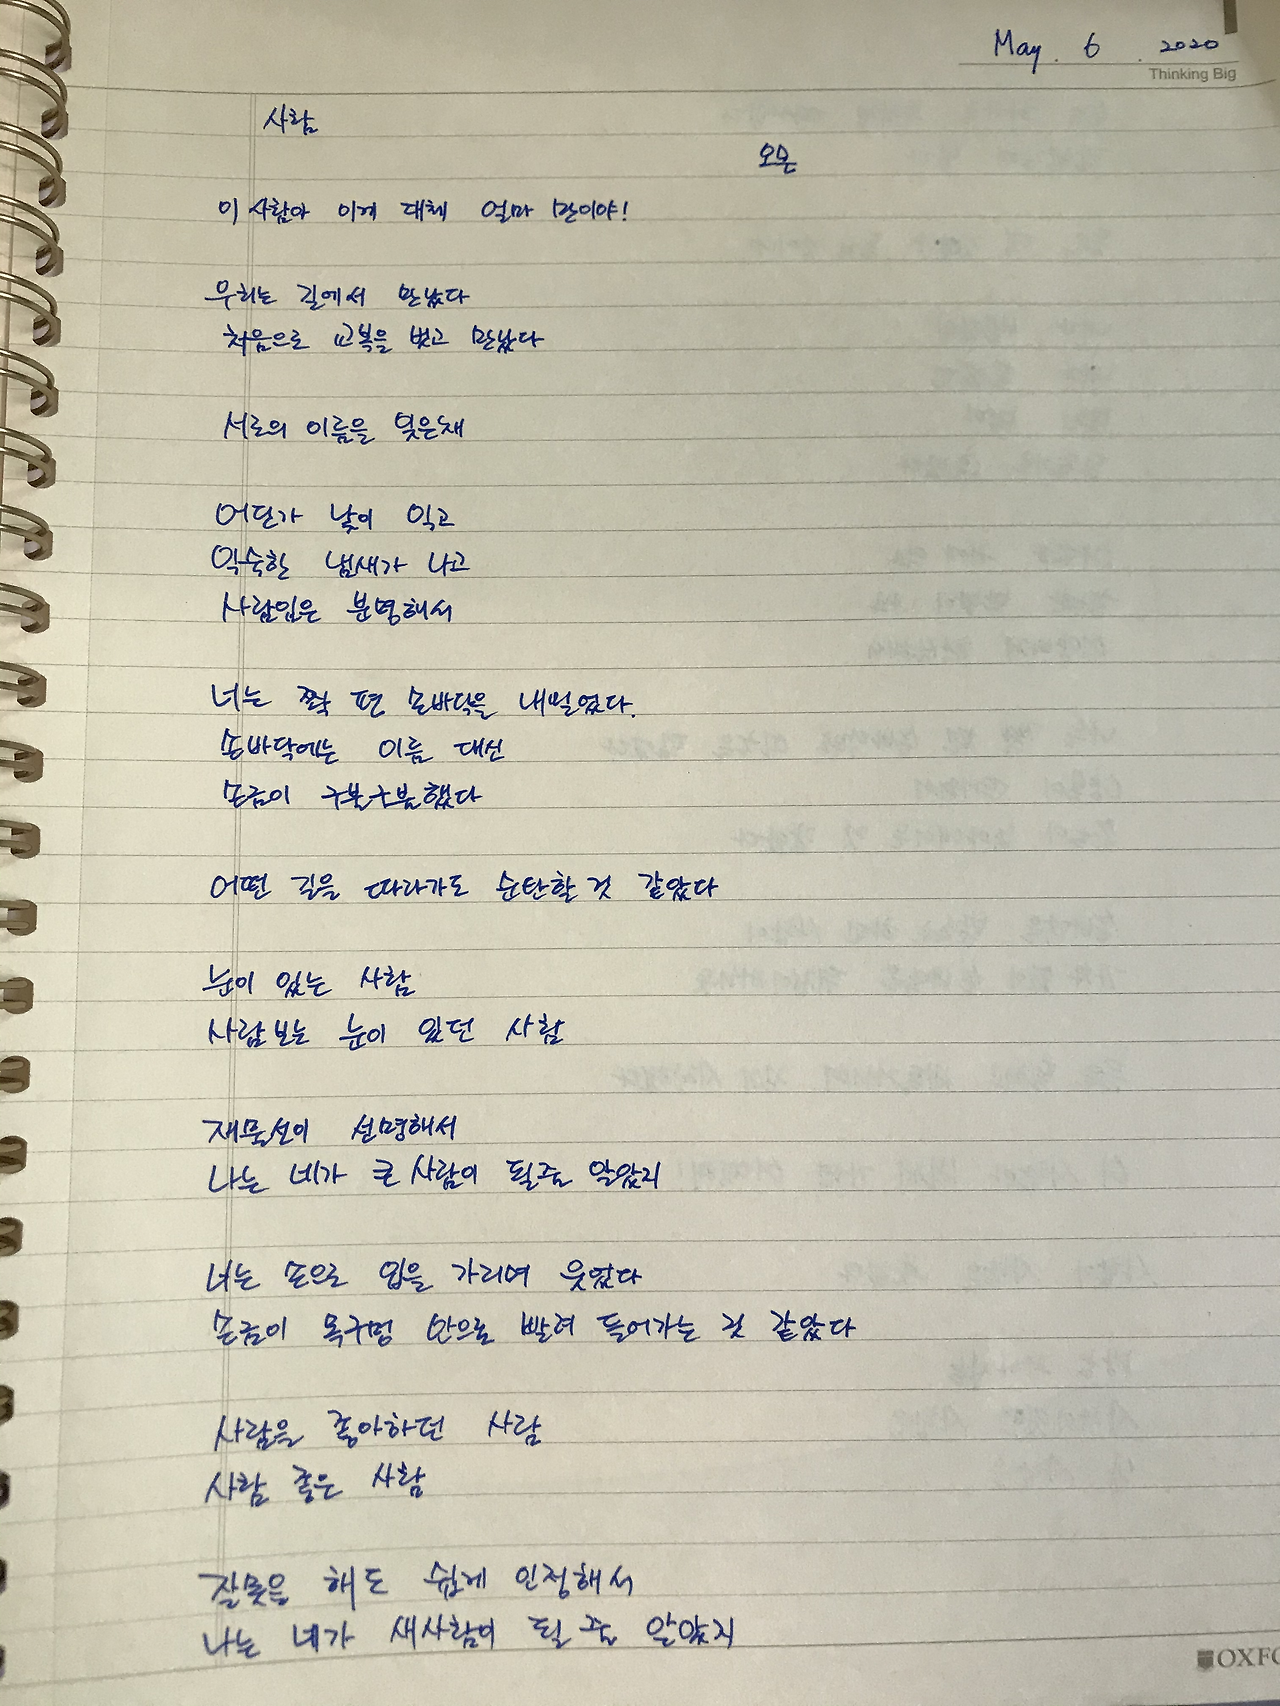 May. 6. 2020
Thinking Big
사람
오은
이 사람아 이게 대체 얼마 만이야!
우리는 길에서 만났다
처음으로 교복을 벗고 만났다
서로의 이름을 잊은채
어딘가 낯이 익고
익숙한 냄새가 나고
사람임은 분명해서
너는 쫙 편 손바닥을 내밀었다.
손바닥에는 이름 대신
손금이 구불구불했다
어떤 길을 따라가도 순탄할 것 같았다
눈이 있는 사람
사람 보는 눈이 있던 사람
재물선이 선명해서
나는 네가 큰 사람이 될줄 알았지
너는 손으로 입을 가리며 웃었다
손금이 목구멍 안으로 빨려 들어가는 것 같았다
사람을 좋아하던 사람
사람 좋은 사람
잘못을 해도 쉽게 인정해서
나는 네가 새사람이 될 줄 알았지
OXFO